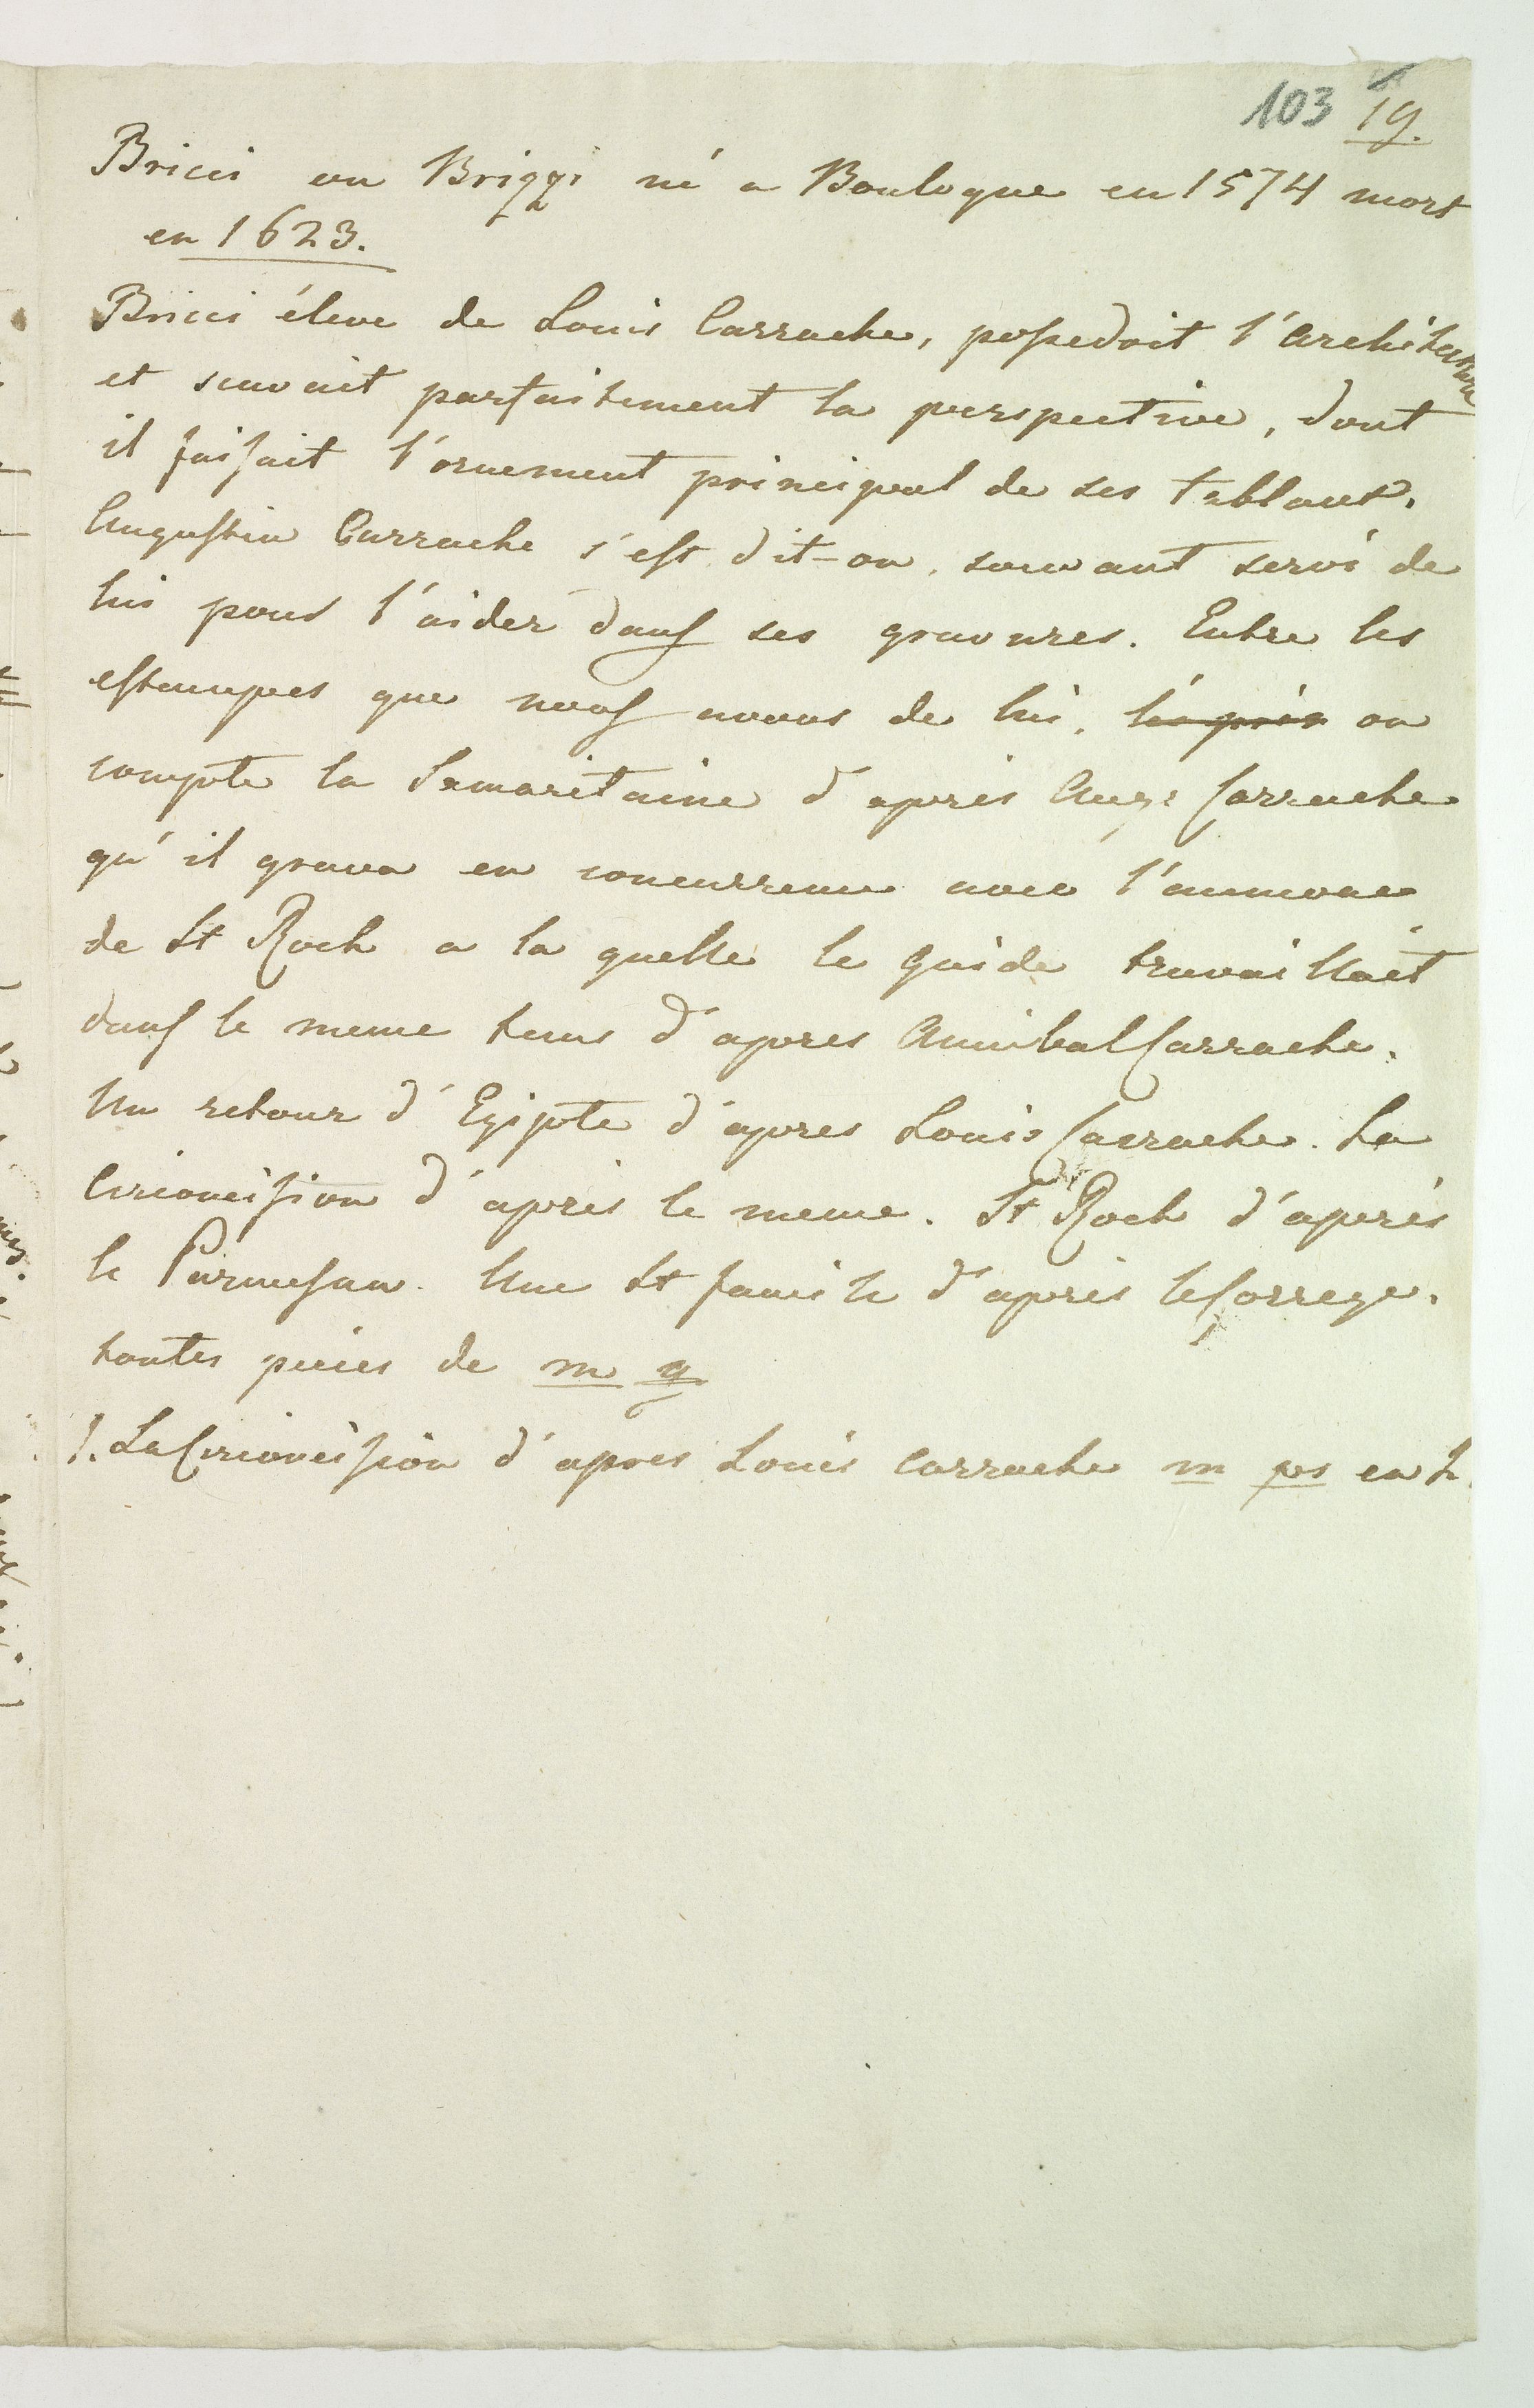 103 19.
Bricci ou Brizzi né a Boulogne en 1574 mort
en 1623.
Bricci éleve de Louis Carrache, possedoit l'Architecture
et scavait parfaitement la perspective, dont
il faisait l'ornement principal de ses tablaux.
Augustin Carrache s'est dit-on, souvant servi de
lui pour l'aider dans ses gravures. Entre les
estampes que nous avons de lui, on
compte la Samaritaine d'après Aug: Carrache
qu'il grava en concurrence avec l'aumone
de St Roch a la quelle le Guide travaillait
dans le meme tems d'apres Annibal Carrache.
Un retour d'Egipte d'apres Louis Carrache. La
Circoncision d'après le meme. St Roch d'après
le Parmesan. Une St famile d'après le Correge.
toutes pieces de m g
1. La Circoncision d'apres Louis Carrache m ps en h.